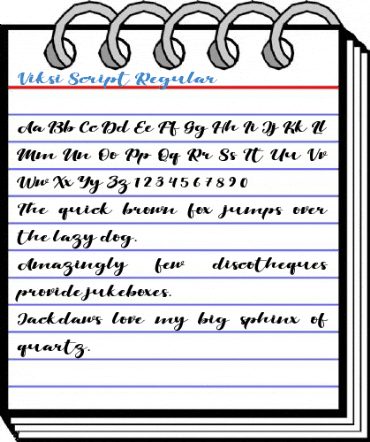 Viksi Script Regular
Aa Bb Cc Dd Ee Ff Gg Hh Ii Jj Kk Ll
Mm Nn Oo Pp Qq Rr Ss Tt Uu Vv
Ww Xx Yy Zz 1 2 3 4 5 6 7 8 9 0
The quick brown fox jumps over
the lazy dog.
Amazingly few discotheques
provide jukeboxes.
Jackdaws love my big sphinx of
quartz.